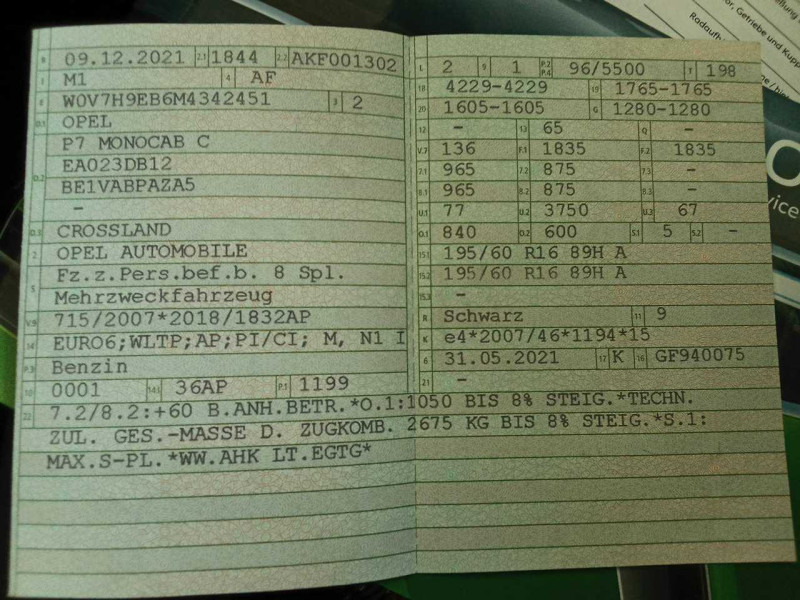 B 09.12.2021 2.1 1844 2.2 AKF001302
J M1 4 AF
E W0V7H9EB6M4342451 3 2
D.1 OPEL
D.2 P7 MONOCAB C
EA023DB12
BE1VABPAZA5
-
D.3 CROSSLAND
2 OPEL AUTOMOBILE
5 Fz.z.Pers.bef.b. 8 Spl.
Mehrzweckfahrzeug
V.9 715/2007*2018/1832AP
14 EURO6;WLTP;AP;PI/CI; M, N1 I
P.3 Benzin
10 0001 14.1 36AP P.1 1199
L 2 9 1 P.2 P.4 96/5500 T 198
18 4229-4229 19 1765-1765
20 1605-1605 G 1280-1280
12 - 13 65 Q -
V.7 136 F.1 1835 F.2 1835
7.1 965 7.2 875 7.3 -
8.1 965 8.2 875 8.3 -
U.1 77 U.2 3750 U.3 67
O.1 840 O.2 600 S.1 5 S.2 -
15.1 195/60 R16 89H A
15.2 195/60 R16 89H A
15.3 -
R Schwarz 11 9
K e4*2007/46*1194*15
6 31.05.2021 17 K 16 GF940075
21 -
22 7.2/8.2:+60 B.ANH.BETR.*O.1:1050 BIS 8% STEIG.*TECHN.
ZUL. GES.-MASSE D. ZUGKOMB. 2675 KG BIS 8% STEIG.*S.1:
MAX.S-PL.*WW.AHK LT.EGTG*
Getriebe und Kupp